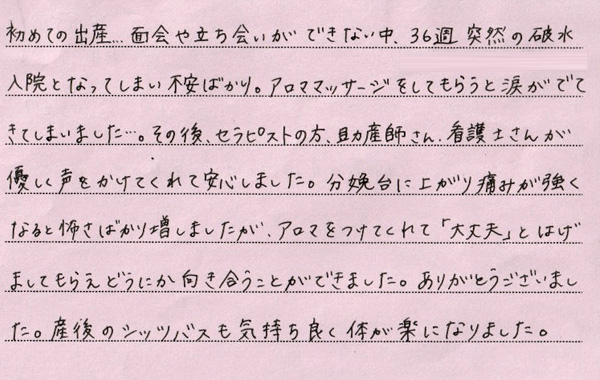 初めての出産… 面会や立ち会いができない中、36週 突然の破水
入院となってしまい不安ばかり。アロママッサージをしてもらうと涙がでて
きてしまいました…。その後、セラピストの方、助産師さん、看護士さんが
優しく声をかけてくれて安心しました。分娩台に上がり痛みが強く
なると怖さばかり増しましたが、アロマをつけてくれて「大丈夫」とはげ
ましてもらえどうにか向き合うことができました。ありがとうございまし
た。産後のシッツバスも気持ち良く体が楽になりました。